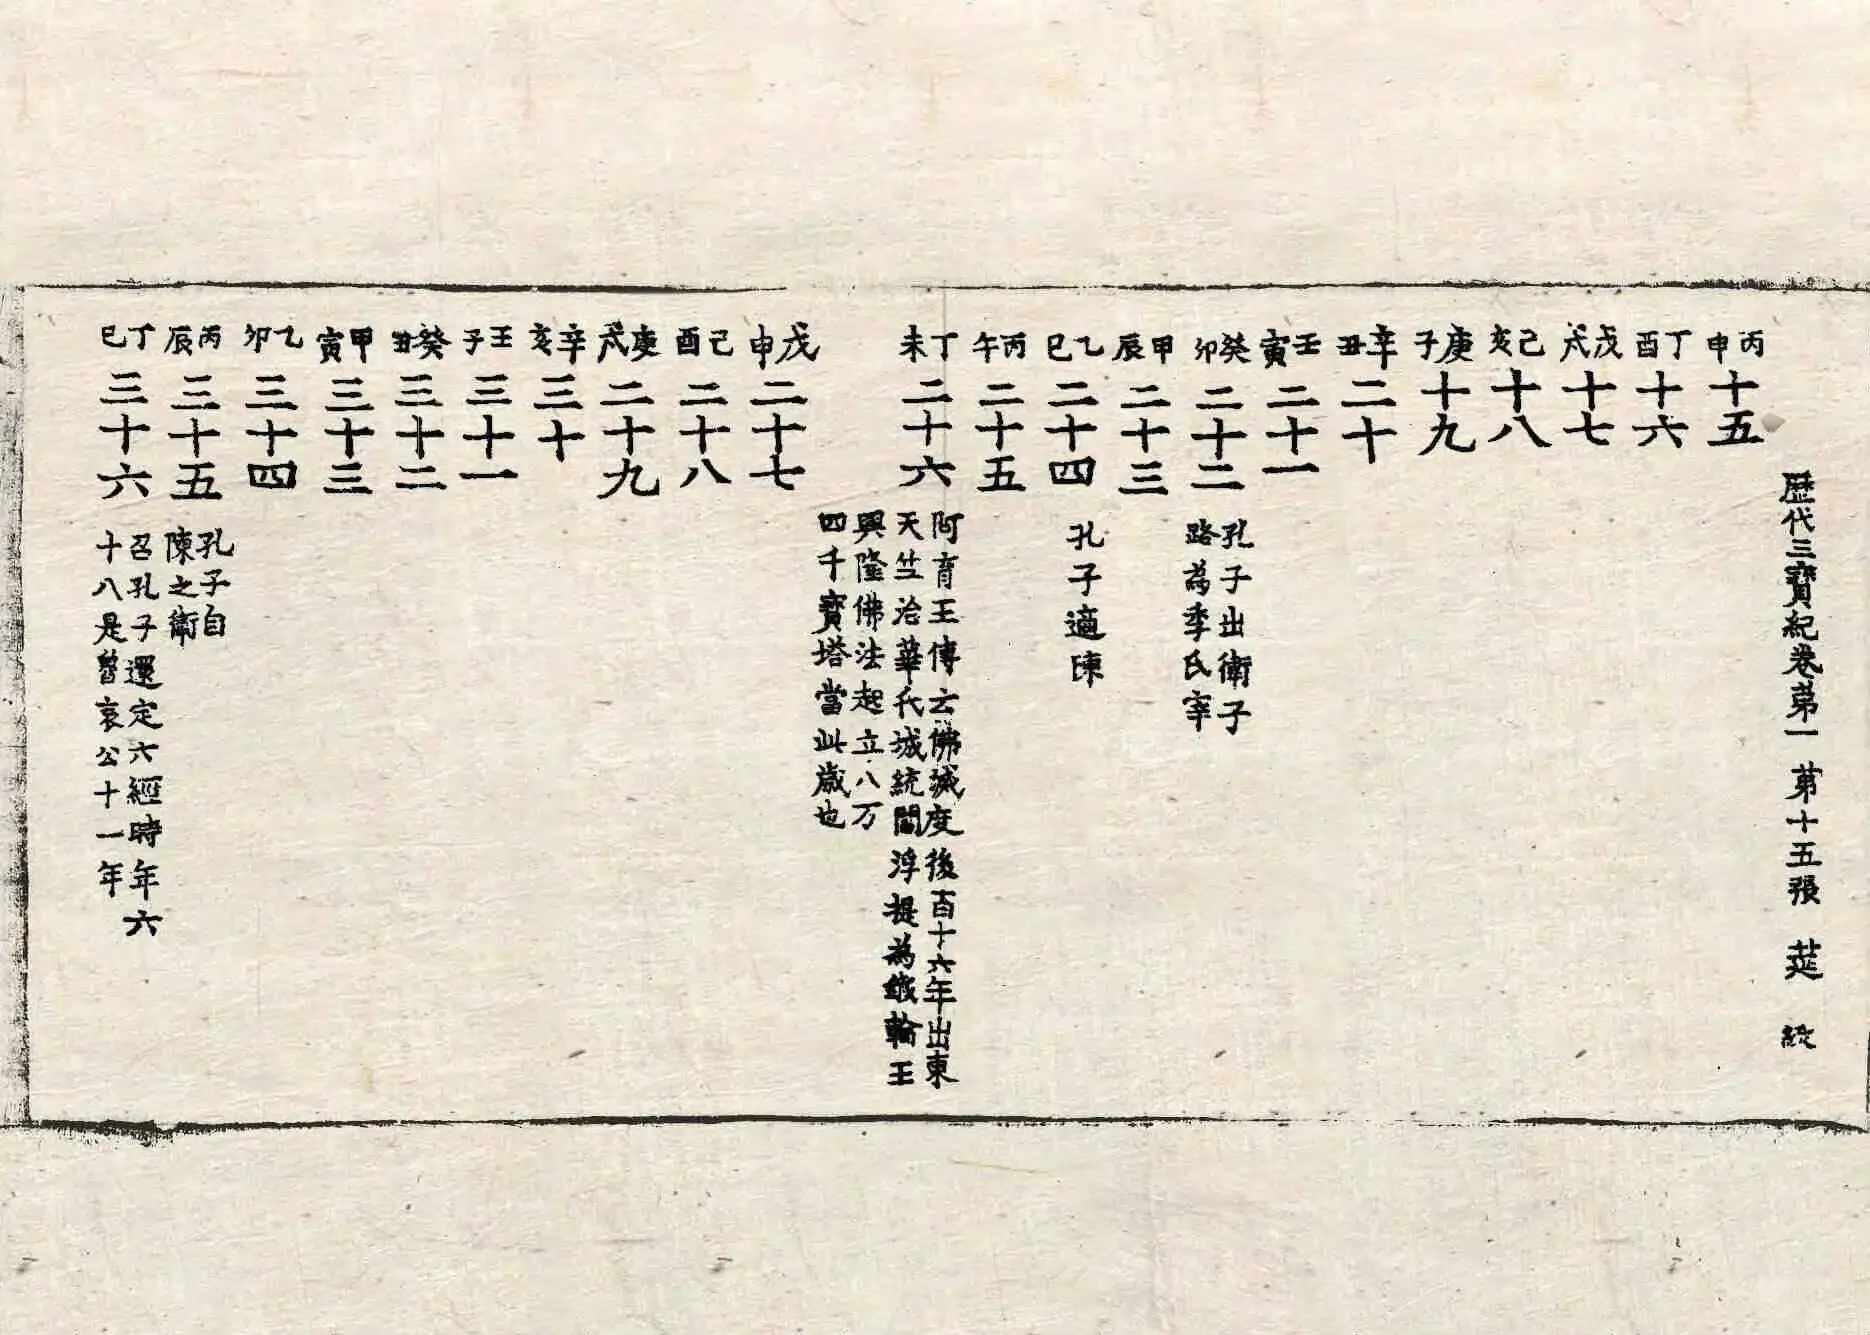 歴代三寶紀卷第一 第十五張
丙申 十五
丁酉 十六
戊戌 十七
己亥 十八
庚子 十九
辛丑 二十
壬寅 二十一
癸卯 二十二
孔子出衛子
路為季氏宰
甲辰 二十三
乙巳 二十四
孔子適陳
丙午 二十五
丁未 二十六
阿育王傳云佛滅度後百十六年出東
天竺治華氏城統閻浮提為鐵輪王
興隆佛法起立八万
四千寶塔當此歲也
戊申 二十七
己酉 二十八
庚戌 二十九
辛亥 三十
壬子 三十一
癸丑 三十二
甲寅 三十三
乙卯 三十四
丙辰 三十五
孔子自
陳之衛
丁巳 三十六
召孔子還定六經時年六
十八是魯哀公十一年